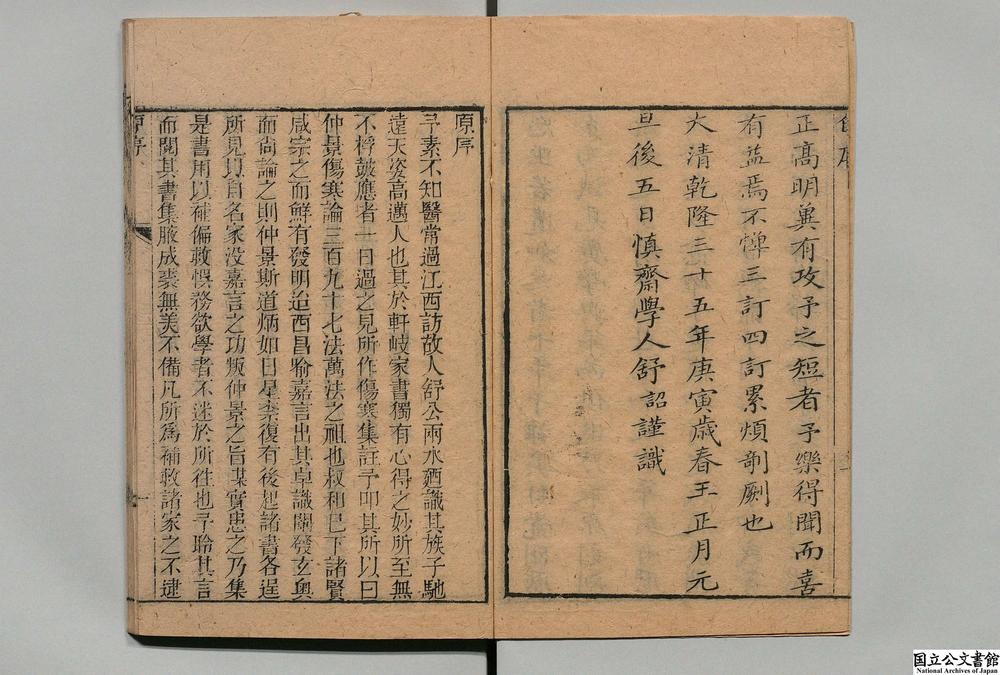 正高明兾有攻予之短者予樂得聞而喜
有益焉不憚三訂四訂累煩剞劂也
大清乾隆三十五年庚寅歳春王正月元
旦後五日慎齋學人舒詔謹識
原序
予素不知醫常過江西訪故人舒公兩水廼識其族子馳
遠天姿高邁人也其於軒岐家書獨有心得之妙所至無
不桴皷應者一日過之見所作傷寒集註予叩其所以曰
仲景傷寒論三百九十七法萬法之祖也叔和已下諸賢
咸宗之而鮮有發明迨西昌喻嘉言出其卓識闡發玄奥
而尚論之則仲景斯道炳如日星柰復有後起諸書各逞
所見以自名家没嘉言之功叛仲景之旨謀實患之乃集
是書用以補偏救悞務欲學者不迷於所徃也予聆其言
而閱其書集腋成裘無美不備凡所爲補救諸家之不逮
原序
一
國立公文書館
National Archives of Japan